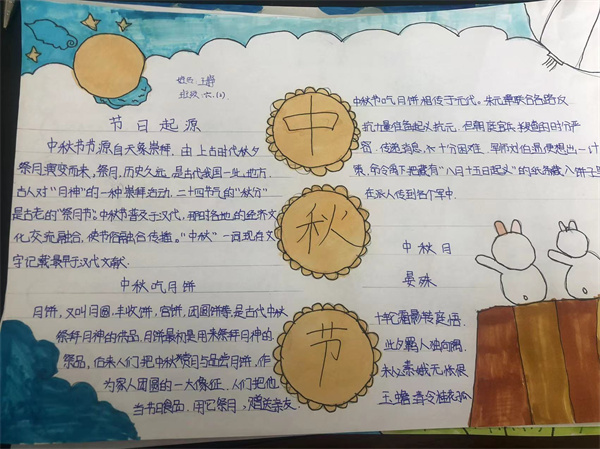 姓名：王
班级：六.(1)
节日起源
中秋节节源自天象崇拜，由上古时代秋夕
祭月演变而来，祭月，历史久远，是古代我国一些地方
古人对“月神”的一种崇拜活动，二十四节气的“秋分”
是古老的“祭月节”。中秋节普及于汉代，那时各地的经济文
化交流融合，使节俗融合传播。“中秋”一词现存文
字记载最早于汉代文献.
中秋吃月饼
月饼，又叫月团，丰收饼，宫饼，团圆饼等，是古代中秋
祭拜月神的供品，月饼最初是用来祭拜月神的
祭品，后来人们把中秋赏月与品尝月饼，作
为家人团圆的一大象征，人们把他
当节日食品，用它祭月，赠送亲友.
中
秋
节
中秋节吃月饼相传于元代。朱元璋联合各路反
抗力量准备起义抗元，但朝庭官兵搜查的时分严
密，传递消息，十分困难，军师刘伯温便想出一计
策，命令属下把藏有“八月十五日起义”的纸条藏入饼子里
在派人传到各个军中.
中秋月
晏殊
十轮霜影转庭梧
此夕羁人独向隅
未必素娥无怅恨
玉蟾清冷桂花孤